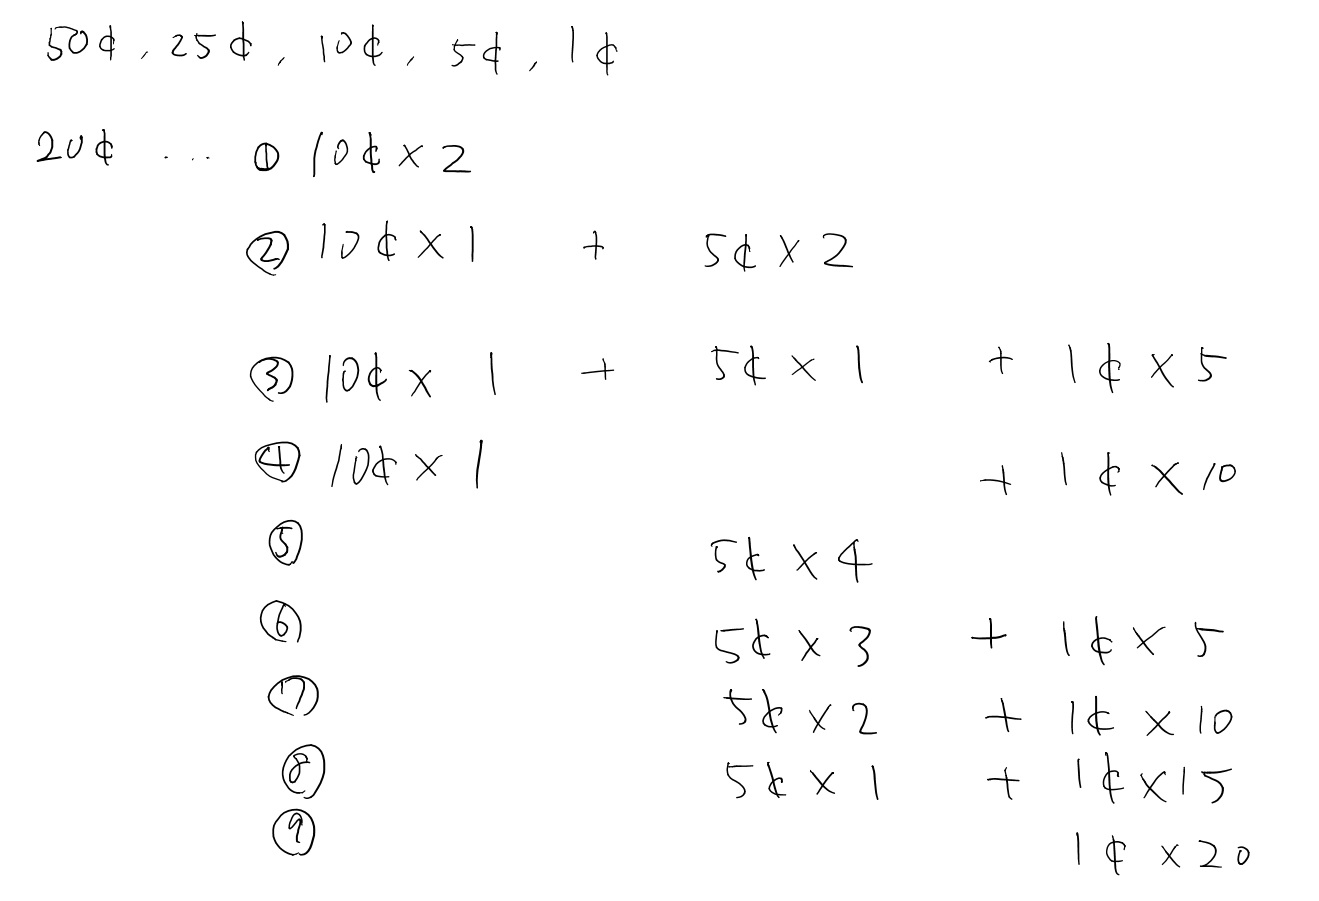 50¢, 25¢, 10¢, 5¢, 1¢
20¢ ... ① 10¢ × 2
② 10¢ × 1 + 5¢ × 2
③ 10¢ × 1 + 5¢ × 1 + 1¢ × 5
④ 10¢ × 1 + 1¢ × 10
⑤ 5¢ × 4
⑥ 5¢ × 3 + 1¢ × 5
⑦ 5¢ × 2 + 1¢ × 10
⑧ 5¢ × 1 + 1¢ × 15
⑨ 1¢ × 20